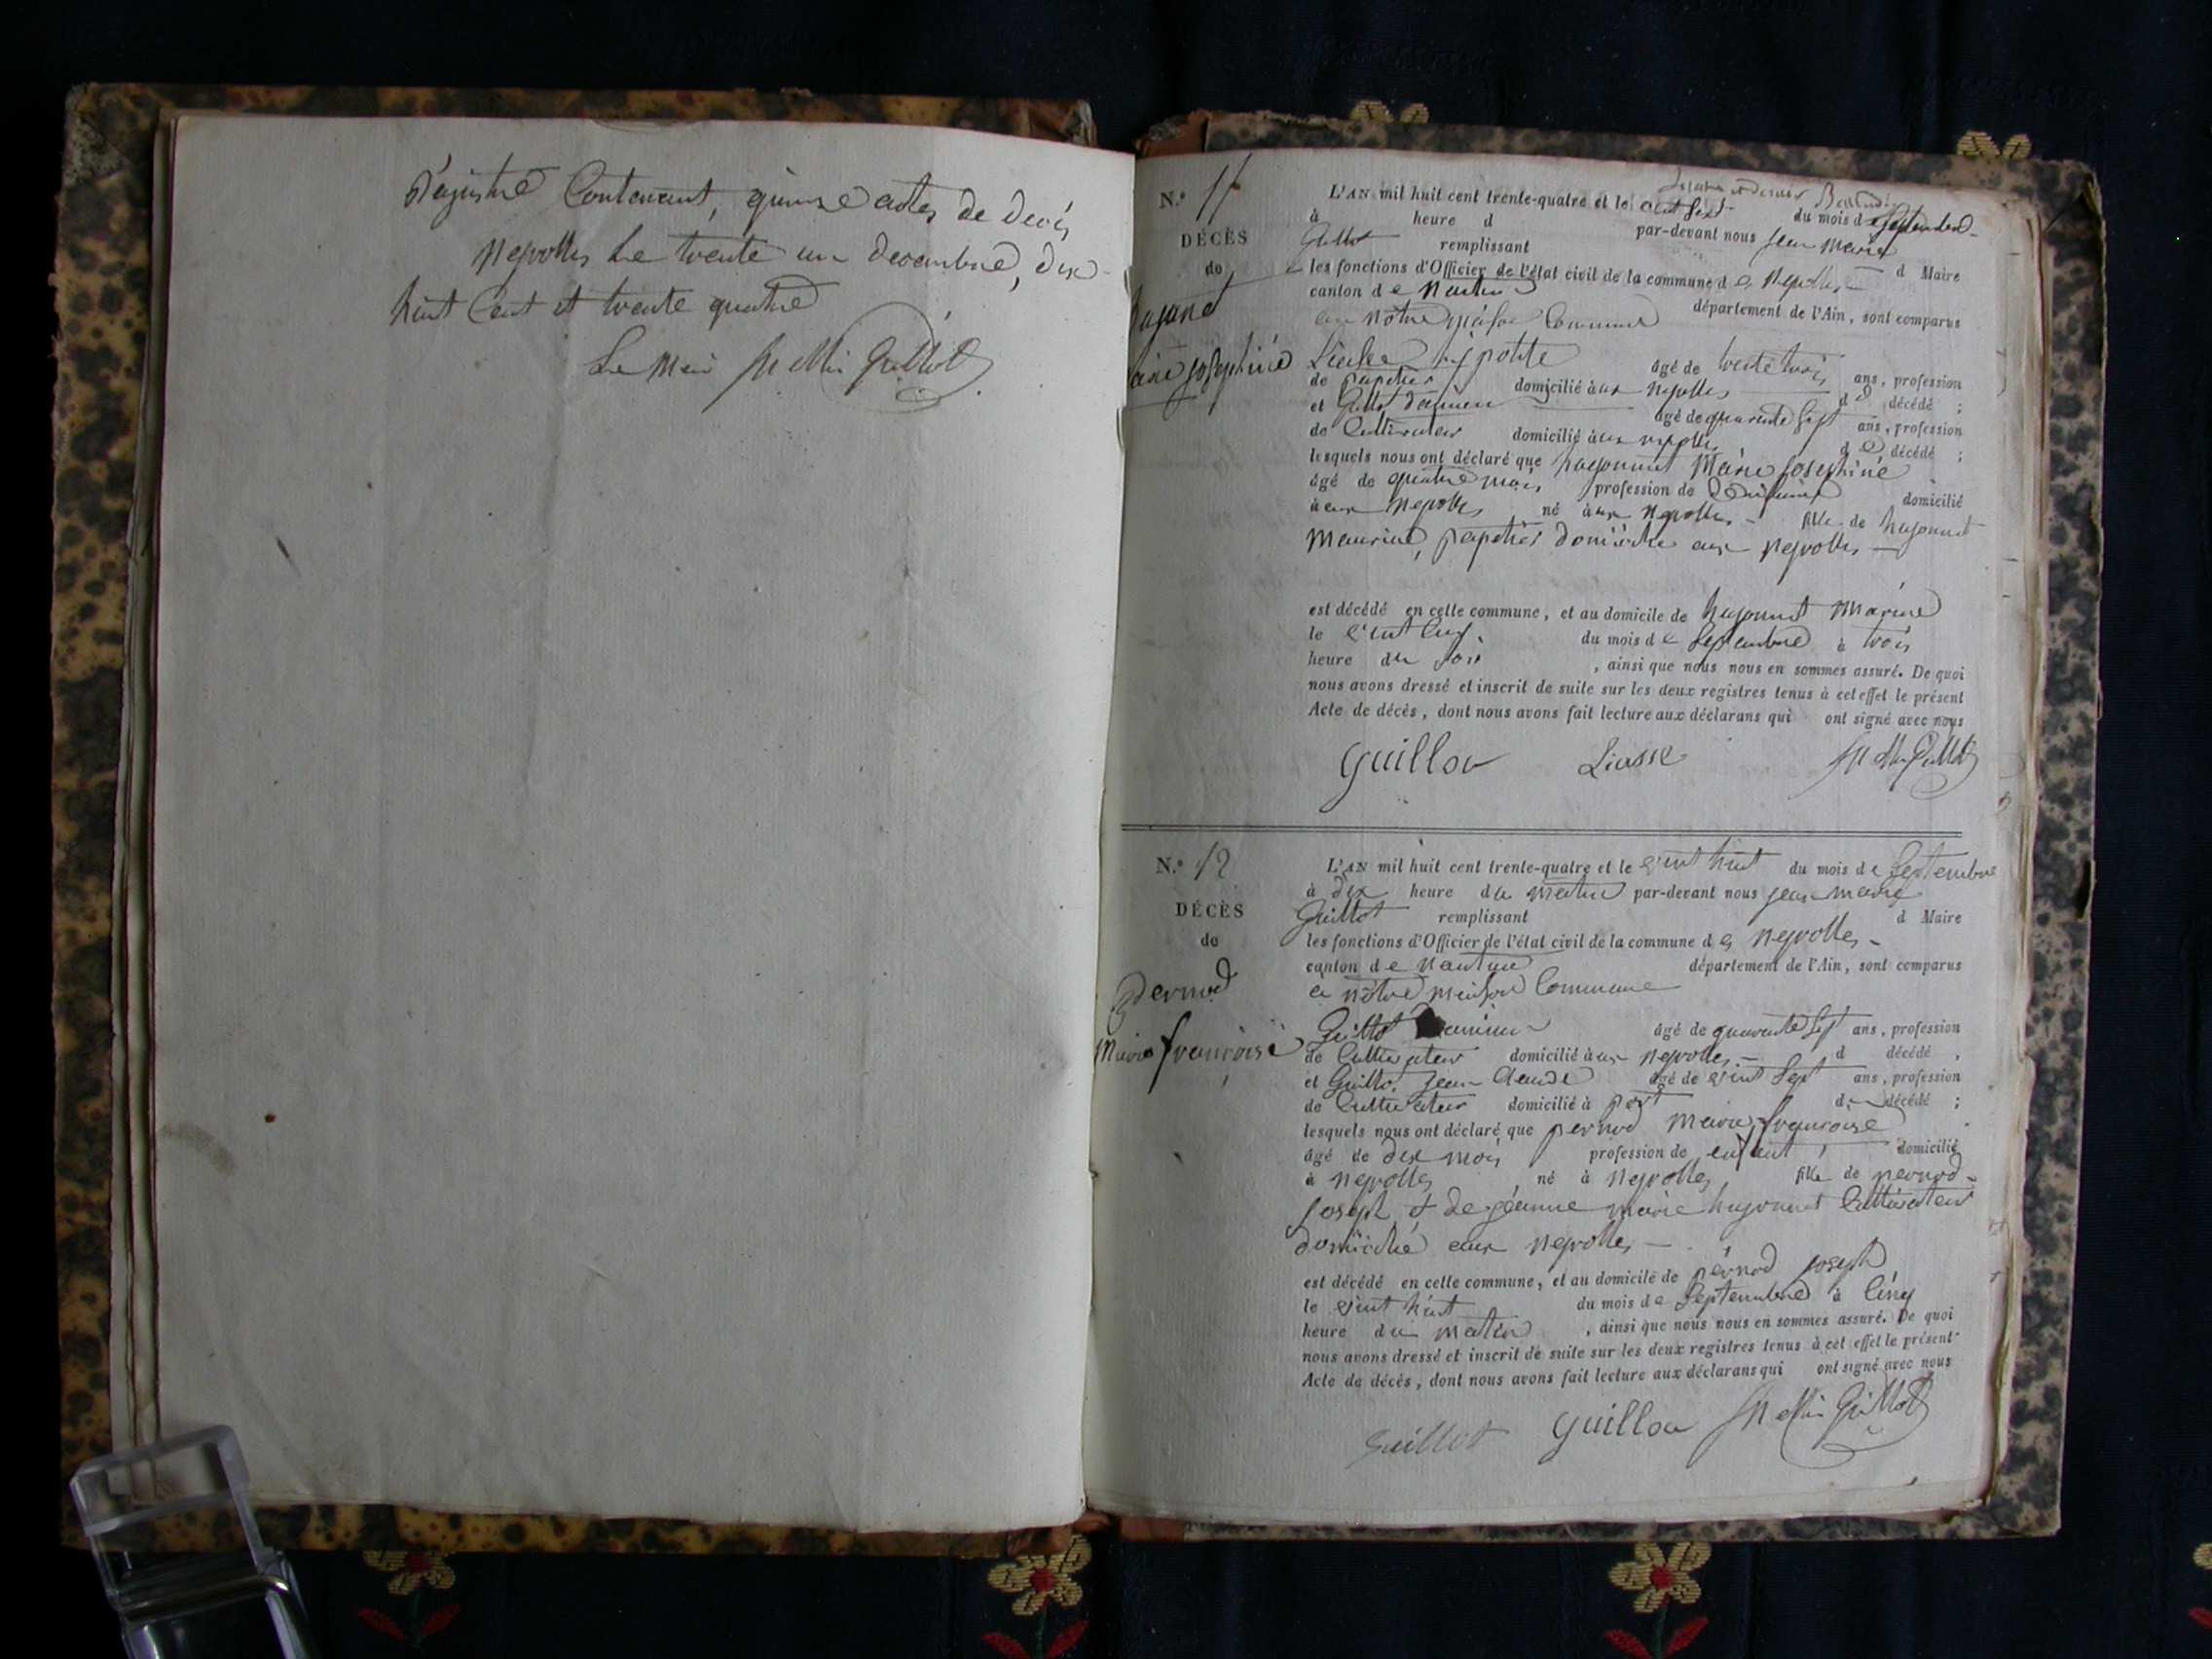 Régistre Contenant, quinze actes de decés
Neyrolles Le trente un decembre, dix
huit Cent et trente quatre
Le Maire
N.º 11
DÉCÈS
de
hujonnet
Marie josephine
L'AN mil huit cent trente-quatre et le vint sept du mois de Septembre
à heure d par-devant nous jean marie
Guillot remplissant d Maire
les fonctions d'Officier de l'état civil de la commune des Neyrolles
canton de Nantua département de l'Ain, sont comparus
en notre maison Commune
Liasse hypolite âgé de trente trois ans, profession
de papetier domicilié à aux neyrolles d décédé ;
et Guillot damien âgé de quarante sept ans, profession
de Cultivateur domicilié à aux neyrolles d décédé ;
lesquels nous ont déclaré que hujonnet Marie Josephine
âgé de quatre mois profession de domicilié
à aux Neyrolles né à aux Neyrolles fille de hujonnet
Maurice, papetier domicilié aux neyrolles
est décédé en cette commune, et au domicile de hujonnet Maurice
le vint six du mois de Septembre à trois
heure du soir , ainsi que nous nous en sommes assuré. De quoi
nous avons dressé et inscrit de suite sur les deux registres tenus à cet effet le présent
Acte de décès, dont nous avons fait lecture aux déclarans qui ont signé avec nous
Guillot Liasse Guillot
N.º 12
DÉCÈS
de
Pernod
Marie françoise
L'AN mil huit cent trente-quatre et le vint huit du mois de Septembre
à dix heure du matin par-devant nous jean marie
Guillot remplissant d Maire
les fonctions d'Officier de l'état civil de la commune des Neyrolles
canton de Nantua département de l'Ain, sont comparus
en notre maison Commune
Guillot damien âgé de quarante sept ans, profession
de Cultivateur domicilié à aux neyrolles d décédé ,
et Guillot Jean Claude âgé de vint sept ans, profession
de Cultivateur domicilié à port d décédé ;
lesquels nous ont déclaré que pernod Marie françoise
âgé de dix mois profession de enfant domicilié
à Neyrolles né à Neyrolles fille de pernod
Joseph et de jéanne marie hujonnet Cultivateur
domicilié aux neyrolles
est décédé en cette commune, et au domicile de pernod joseph
le vint huit du mois de Septembre à Cinq
heure du matin , ainsi que nous nous en sommes assuré. De quoi
nous avons dressé et inscrit de suite sur les deux registres tenus à cet effet le présent
Acte de décès, dont nous avons fait lecture aux déclarans qui ont signé avec nous
Guillot Guillot Guillot